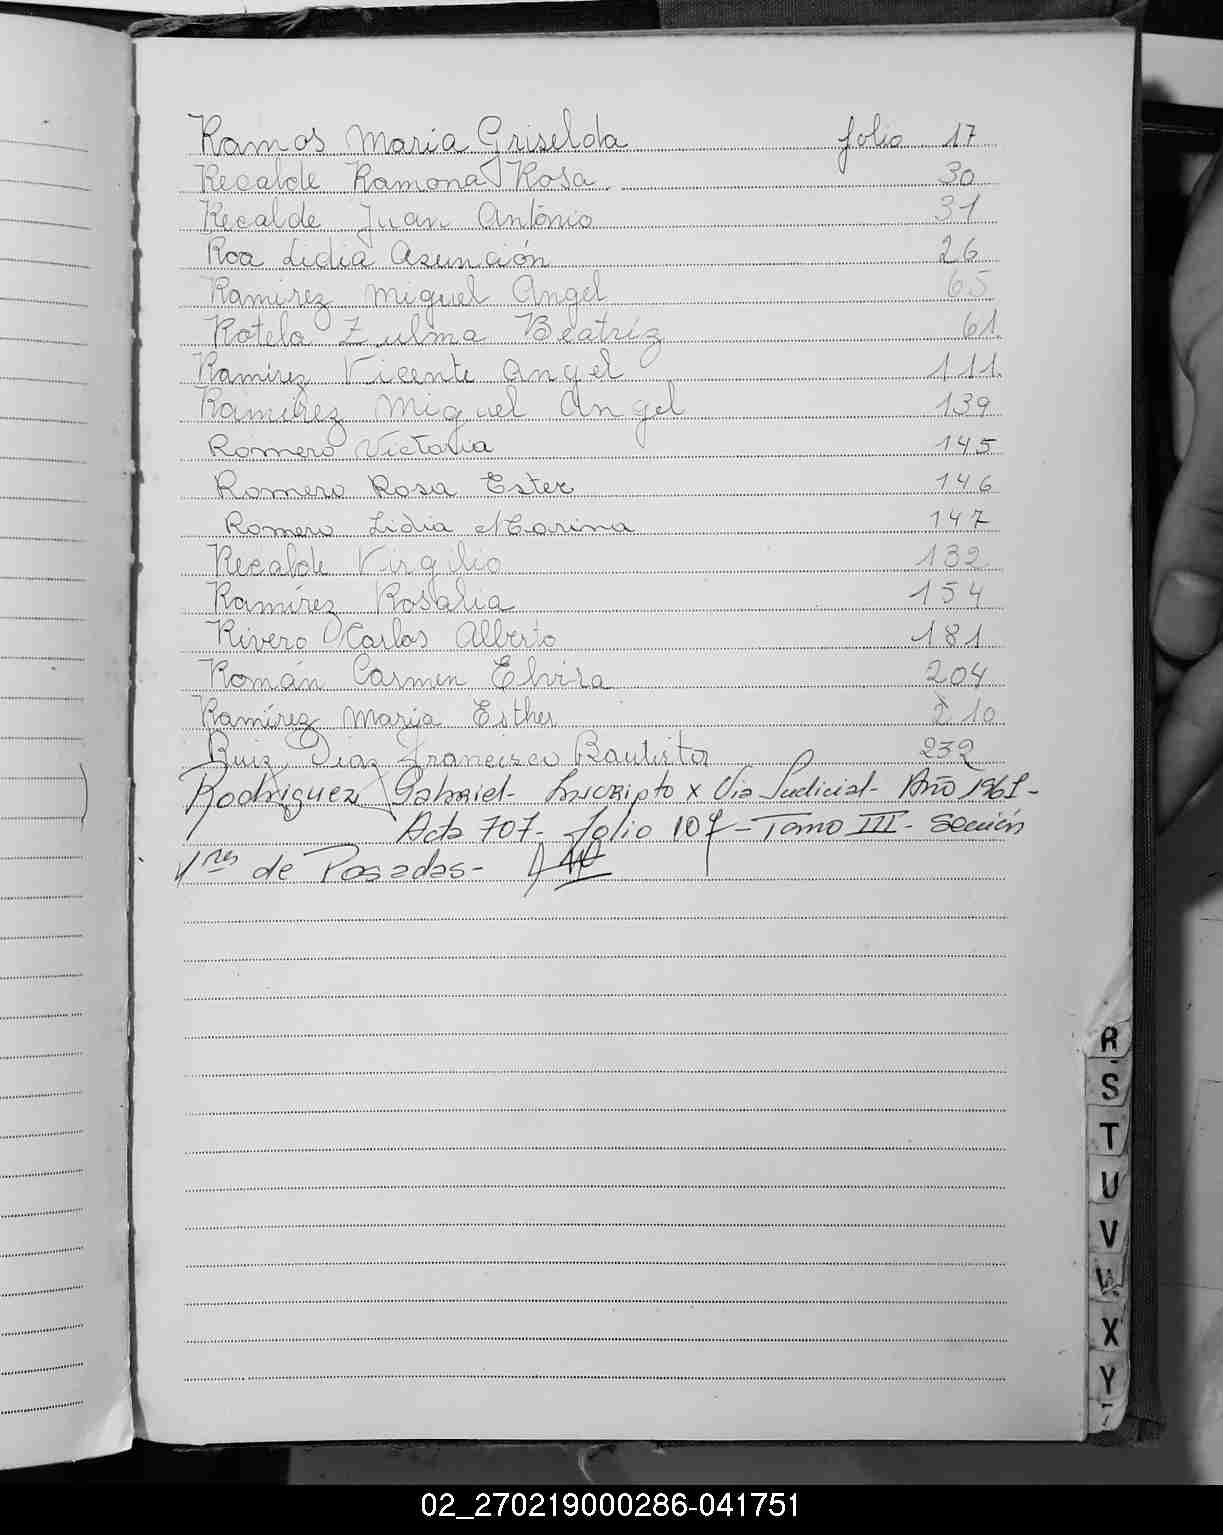 Ramos Maria Griselda folio 17
Recalde Ramona Rosa 30
Recalde Juan Antonio 31
Roa Lidia Asunción 26
Ramirez Miguel Angel 65
Rotela Zulma Beatríz 61
Ramírez Vicente Angel 111
Ramirez Miguel Angel 139
Romero Victoria 145
Romero Rosa Ester 146
Romero Lidia Marina 147
Recalde Virgilio 132
Ramírez Rosalia 154
Rivero Carlos Alberto 181
Román Carmen Elvira 204
Ramírez Maria Esther 210
Ruiz Diaz Francisco Bautista 232
Rodriguez Gabriel- Inscripto x Via Judicial- Año 1961-
Acta 707- folio 107- Tomo III- Sección
1ras de Posadas-
R
S
T
U
V
W
X
Y
Z
02_270219000286-041751